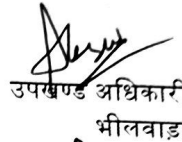 उपखण्ड अधिकारी
भीलवाड़